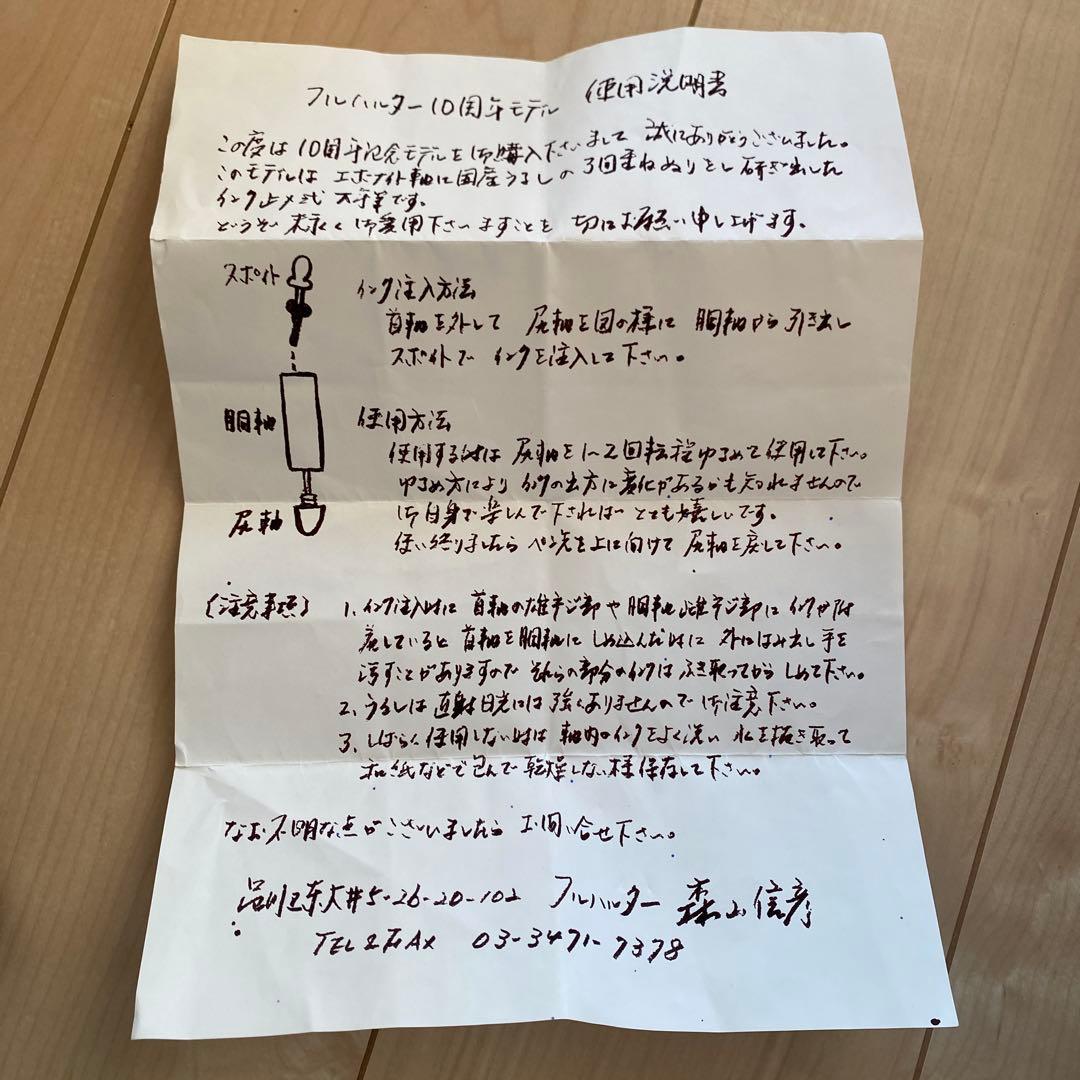 フルハルター10周年モデル 使用説明書
この度は10周年記念モデルを御購入下さいまして 誠にありがとうございました。
このモデルは エボナイト軸に国産うるしの3回重ねぬりをし研ぎ出した
インク止メ式 万年筆です。
どうぞ 末永く御愛用下さいますことを 切にお願い申し上げます。
スポイト
インク注入方法
首軸を外して 尻軸を図の様に 胴軸から引き出し
スポイトで インクを注入して下さい。
胴軸
使用方法
使用する時は 尻軸を1〜2回転程ゆるめて使用して下さい。
ゆるめ方により インクの出方に変化があるかも知れませんので
御自身で楽しんで下されば とても嬉しいです。
尻軸
使い終りましたら ペン先を上に向けて 尻軸を戻して下さい。
(注意事項)
1. インク注入時に 首軸の雄ネジ部や 胴軸雌ネジ部に インクが付
着していると 首軸を胴軸に しめ込んだ時に 外にはみ出し 手を
汚すことがありますので それらの部分のインクは ふき取ってから しめて下さい。
2. うるしは 直射日光には 強くありませんので 御注意下さい。
3. しばらく使用しない時は 軸内のインクをよく洗い 水を拭き取って
和紙などで包んで 乾燥しない様 保存して下さい。
なお 不明な点がございましたら お問い合せ下さい。
品川区東大井5-26-20-102 フルハルター 森山信彦
TEL & FAX 03-3471-7378